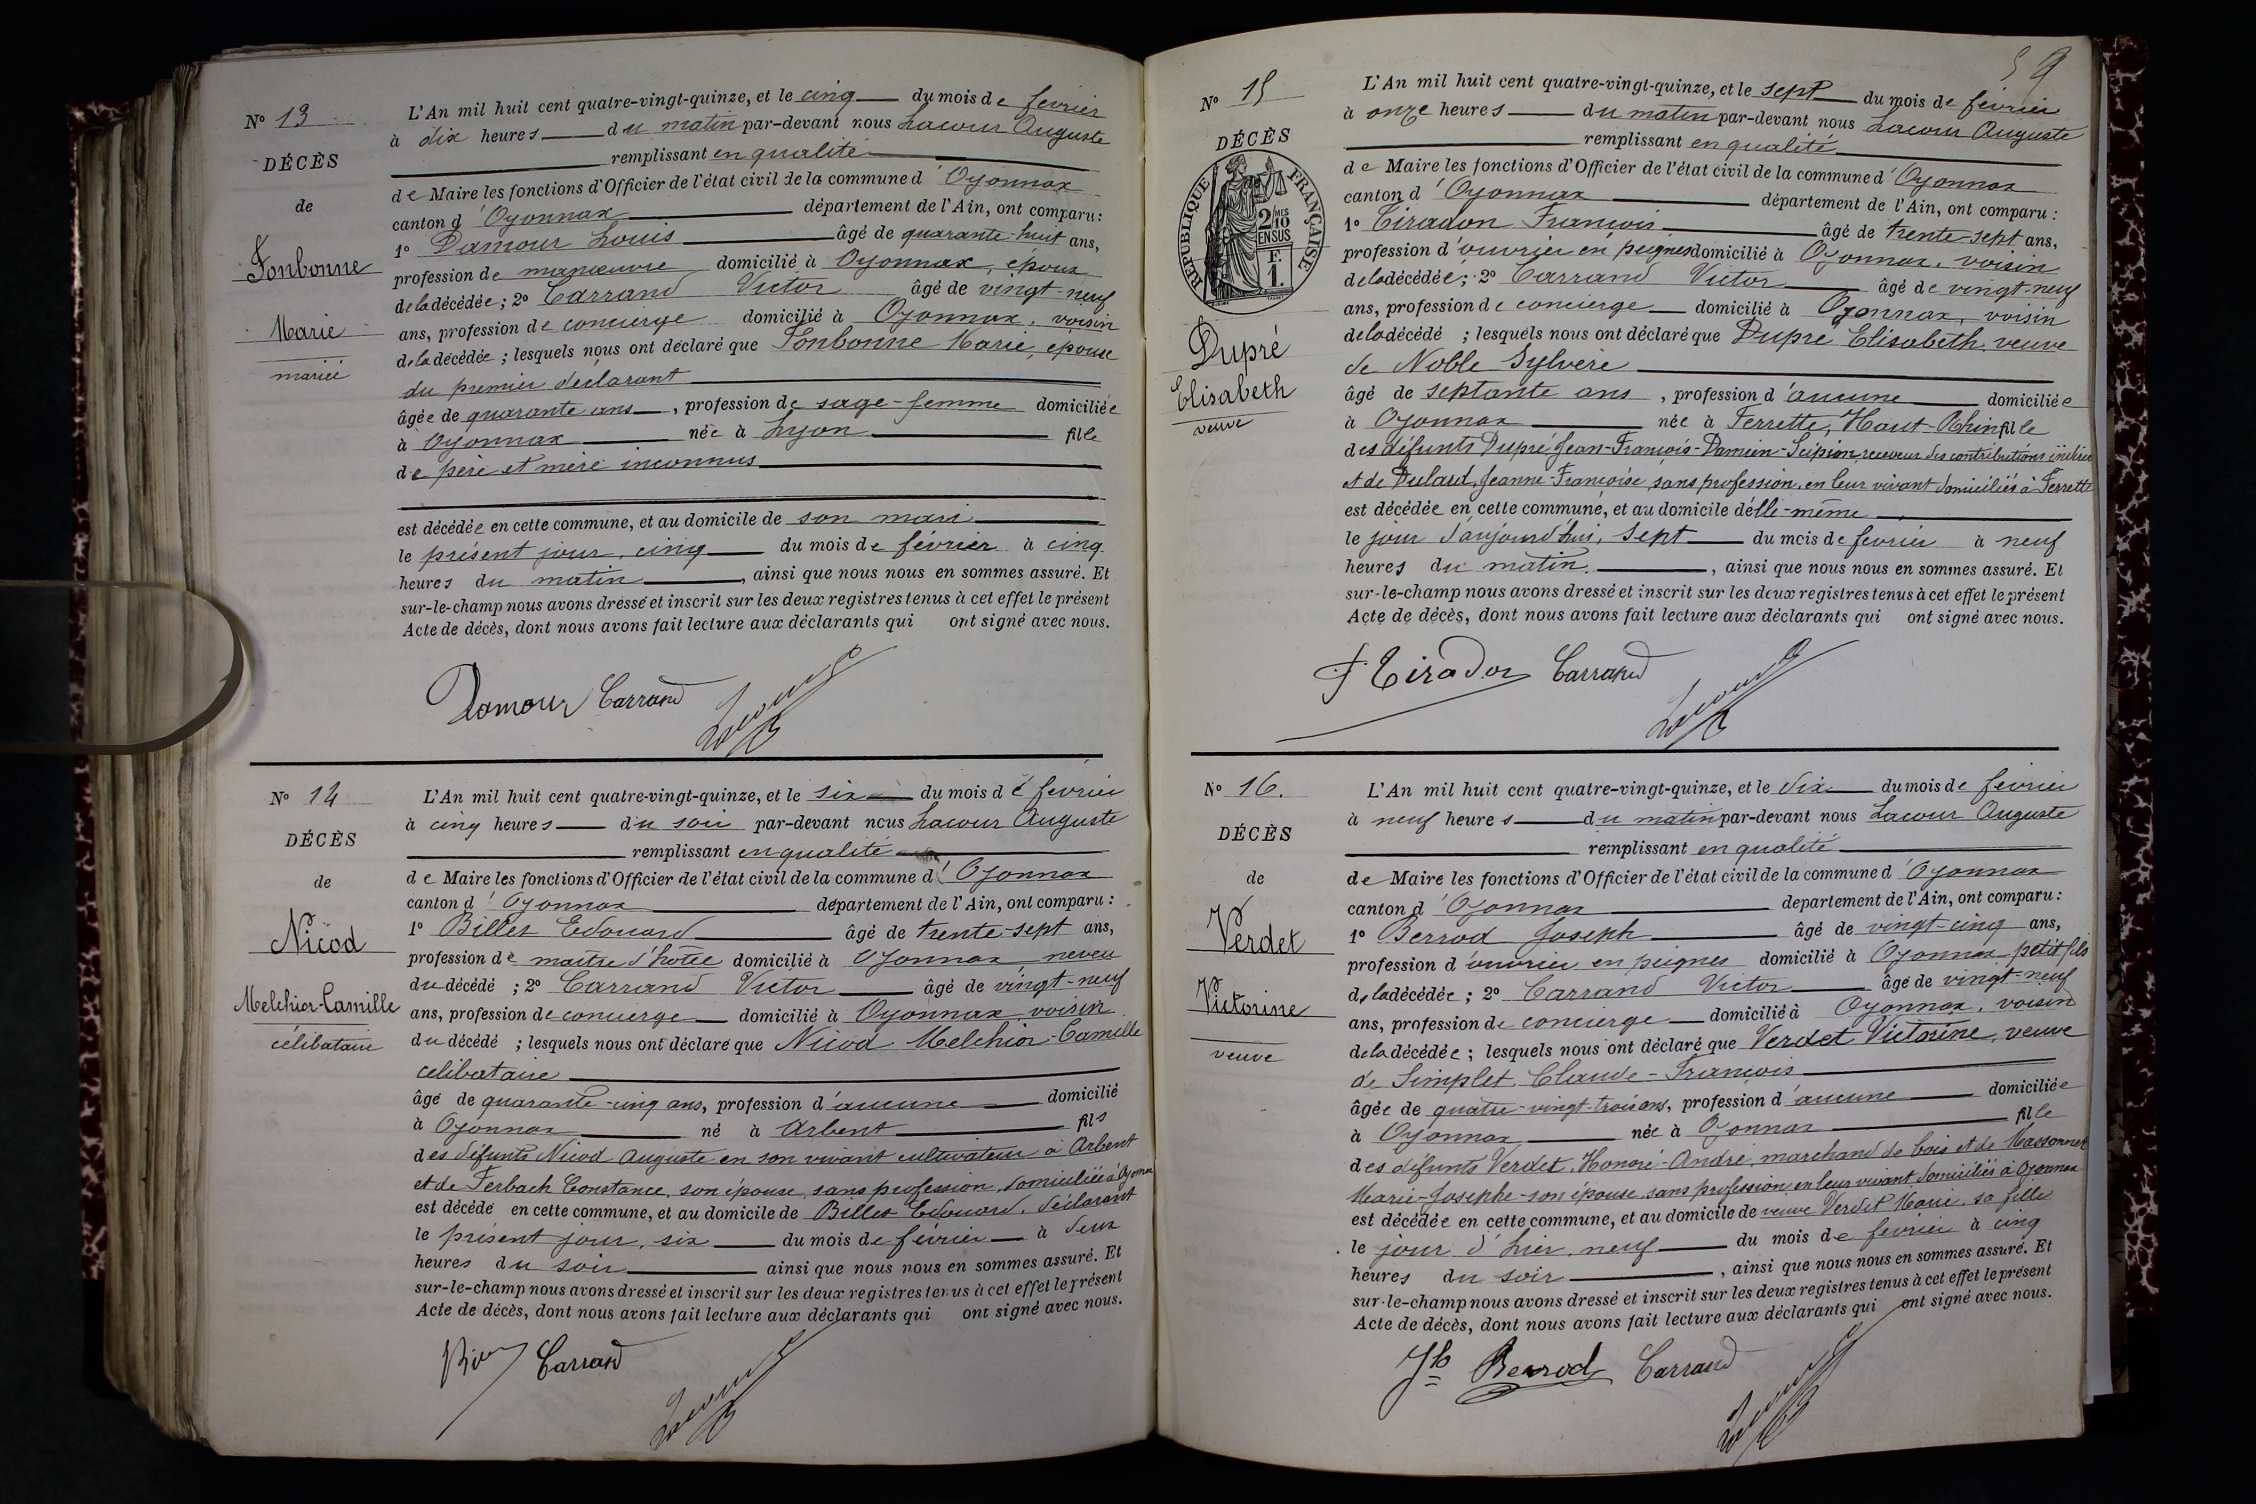 Nº 13
DÉCÈS
de
Fonbonne
Marie
mariée
L'An mil huit cent quatre-vingt-quinze, et le cinq du mois de février
à dix heures du matin par-devant nous Lacour Auguste
remplissant en qualité
de Maire les fonctions d'Officier de l'état civil de la commune d'Oyonnax
canton d'Oyonnax département de l'Ain, ont comparu :
1º Damour Louis âgé de quarante-huit ans,
profession de manœuvre domicilié à Oyonnax, époux
de la décédée ; 2º Carrand Victor âgé de vingt-neuf
ans, profession de concierge domicilié à Oyonnax, voisin
de la décédée ; lesquels nous ont déclaré que Fonbonne Marie, épouse
du premier déclarant
âgée de quarante ans, profession de sage-femme domiciliée
à Oyonnax née à Lyon fille
de père et mère inconnus
est décédée en cette commune, et au domicile de son mari
le présent jour, cinq du mois de février à cinq
heures du matin, ainsi que nous nous en sommes assuré. Et
sur-le-champ nous avons dressé et inscrit sur les deux registres tenus à cet effet le présent
Acte de décès, dont nous avons fait lecture aux déclarants qui ont signé avec nous.
Damour Carrand Lacour
Nº 14
DÉCÈS
de
Nicod
Melchior-Camille
célibataire
L'An mil huit cent quatre-vingt-quinze, et le six du mois de février
à cinq heures du soir par-devant nous Lacour Auguste
remplissant en qualité
de Maire les fonctions d'Officier de l'état civil de la commune d'Oyonnax
canton d'Oyonnax département de l'Ain, ont comparu :
1º Billet Edouard âgé de trente-sept ans,
profession de maître d'hôtel domicilié à Oyonnax neveu
du décédé ; 2º Carrand Victor âgé de vingt-neuf
ans, profession de concierge domicilié à Oyonnax, voisin
du décédé ; lesquels nous ont déclaré que Nicod Melchior-Camille
célibataire
âgé de quarante-cinq ans, profession d'aucune domicilié
à Oyonnax né à Arbent fils
des défunts Nicod Auguste en son vivant cultivateur à Arbent
et de Ferbach Constance, son épouse, sans profession, domiciliée à Oyonnax
est décédé en cette commune, et au domicile de Billet Edouard, déclarant
le présent jour, six du mois de février à deux
heures du soir ainsi que nous nous en sommes assuré. Et
sur-le-champ nous avons dressé et inscrit sur les deux registres tenus à cet effet le présent
Acte de décès, dont nous avons fait lecture aux déclarants qui ont signé avec nous.
Carrand Lacour
59
Nº 15
DÉCÈS
RÉPUBLIQUE FRANÇAISE
2/10 MES
EN SUS
F.
1.
Dupré
Elisabeth
veuve
L'An mil huit cent quatre-vingt-quinze, et le sept du mois de février
à onze heures du matin par-devant nous Lacour Auguste
remplissant en qualité
de Maire les fonctions d'Officier de l'état civil de la commune d'Oyonnax
canton d'Oyonnax département de l'Ain, ont comparu :
1º Tiradon François âgé de trente-sept ans,
profession d'ouvrier en peignes domicilié à Oyonnax, voisin
de la décédée ; 2º Carrand Victor âgé de vingt-neuf
ans, profession de concierge domicilié à Oyonnax, voisin
de la décédé ; lesquels nous ont déclaré que Dupré Elisabeth, veuve
de Noble Sylvère
âgé de septante ans, profession d'aucune domiciliée
à Oyonnax née à Ferrette, Haut-Rhin fille
des défunts Dupré Jean-François-Damien-Scipion, receveur des contributions indirectes
et de Dulard, Jeanne-Françoise, sans profession, en leur vivant domiciliés à Ferrette
est décédée en cette commune, et au domicile d'elle-même
le jour d'aujourd'hui, sept du mois de février à neuf
heures du matin, ainsi que nous nous en sommes assuré. Et
sur-le-champ nous avons dressé et inscrit sur les deux registres tenus à cet effet le présent
Acte de décès, dont nous avons fait lecture aux déclarants qui ont signé avec nous.
F Tirador Carrand Lacour
Nº 16.
DÉCÈS
de
Verdet
Victorine
veuve
L'An mil huit cent quatre-vingt-quinze, et le dix du mois de février
à neuf heures du matin par-devant nous Lacour Auguste
remplissant en qualité
de Maire les fonctions d'Officier de l'état civil de la commune d'Oyonnax
canton d'Oyonnax département de l'Ain, ont comparu :
1º Berrod Joseph âgé de vingt-cinq ans,
profession d'ouvrier en peignes domicilié à Oyonnax petit fils
de la décédée ; 2º Carrand Victor âgé de vingt-neuf
ans, profession de concierge domicilié à Oyonnax, voisin
de la décédée ; lesquels nous ont déclaré que Verdet Victorine, veuve
de Simplet, Claude-François
âgée de quatre-vingt-trois ans, profession d'aucune domiciliée
à Oyonnax née à Oyonnax fille
des défunts Verdet, Honoré-André, marchand de bois et de Massonnet
Marie-Josephe son épouse, sans profession, en leur vivant domiciliés à Oyonnax
est décédée en cette commune, et au domicile de veuve Verdet Marie, sa fille
le jour d'hier neuf du mois de février à cinq
heures du soir, ainsi que nous nous en sommes assuré. Et
sur-le-champ nous avons dressé et inscrit sur les deux registres tenus à cet effet le présent
Acte de décès, dont nous avons fait lecture aux déclarants qui ont signé avec nous.
Jh Berrod Carrand Lacour